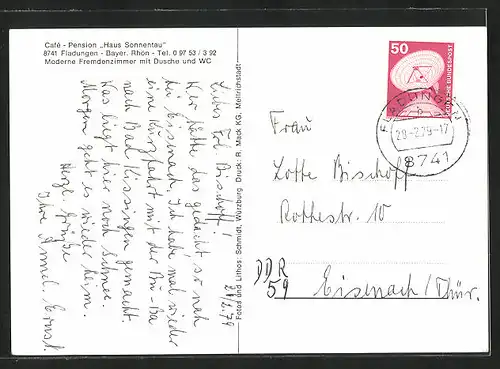 Café - Pension „Haus Sonnentau"
8741 Fladungen - Bayer. Rhön - Tel. 0 97 53 / 3 92
Moderne Fremdenzimmer mit Dusche und WC
28.2.79
Liebes Frl. Bischoff!
Wer hätte das gedacht so nah
bei Eisenach. Ich habe mal wieder
eine Kurzfahrt mit der Bu-Ba
nach Bad Kissingen gemacht.
Was liegt hier noch Schnee.
Morgen geht es wieder heim.
Herzl. Grüße
Ihre Annel. Ernst
Fotos und Lithos: Schmidt, Würzburg Druck: R. Mack KG, Mellrichstadt
50
DEUTSCHE BUNDESPOST
FLADUNGEN
b
29.-2.79-17
8741
Frau
Lotte Bischoff
Rothestr. 10
DDR
59
Eisenach/Thür.